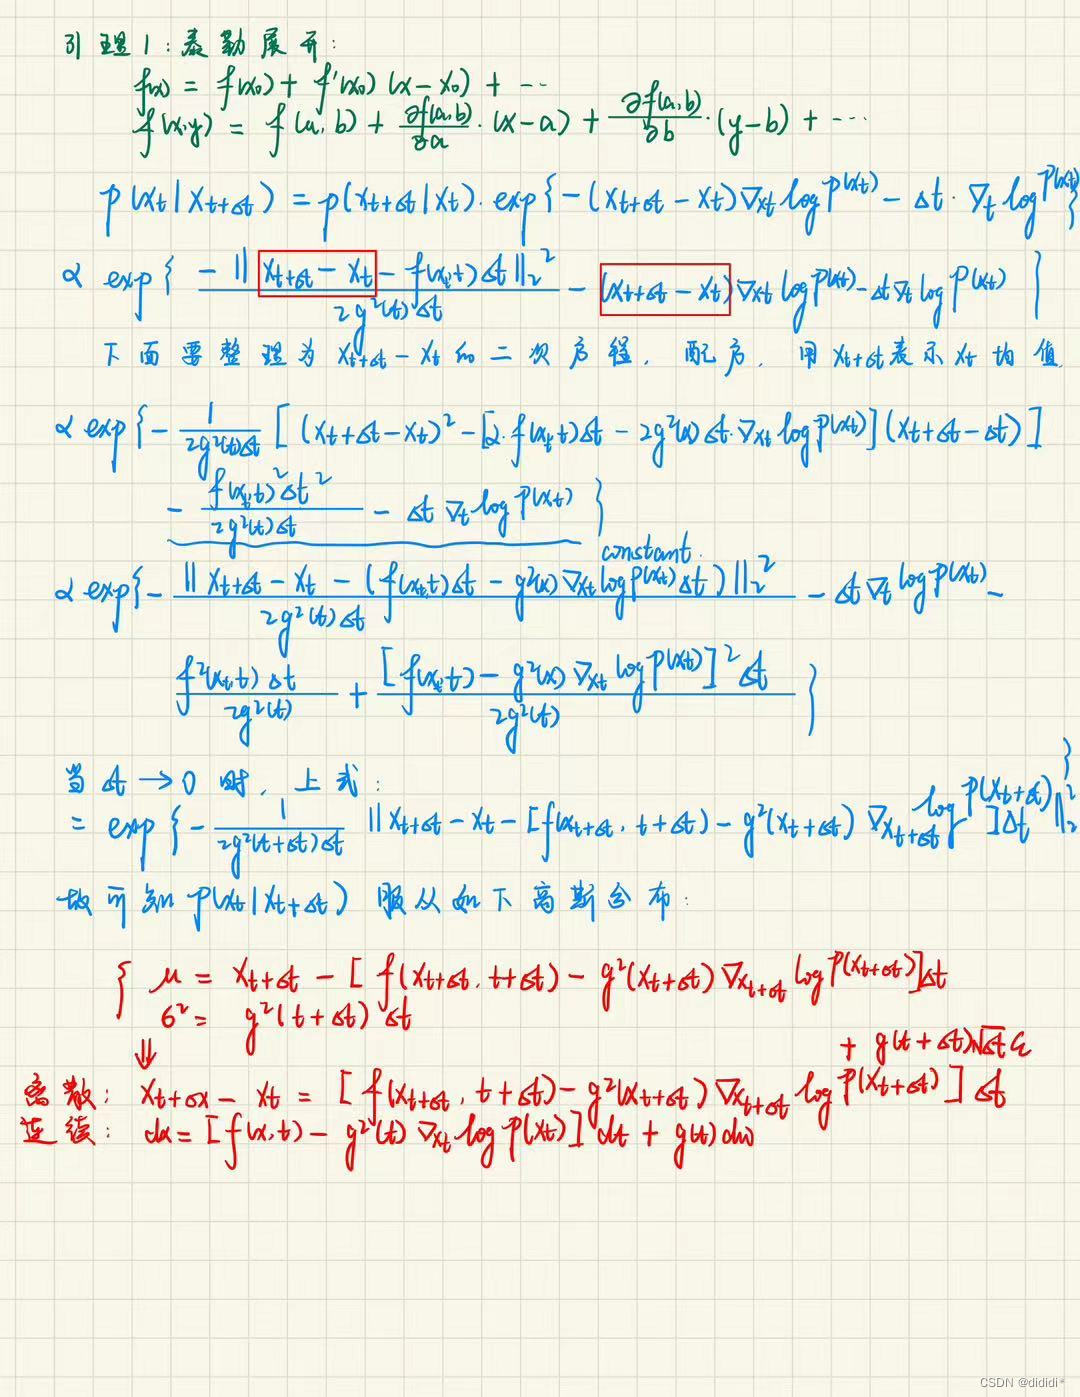 引理1:泰勒展开:
f(x) = f(x₀) + f'(x₀)(x-x₀) + ...
f(x,y) = f(a,b) + ∂f(a,b)/∂a · (x-a) + ∂f(a,b)/∂b · (y-b) + ...
p(xt|xt+Δt) = p(xt+Δt|xt) · exp{-(xt+Δt - xt)∇xt log p(xt) - Δt · ∇t log p(xt)}
∝ exp{ -‖xt+Δt - xt - f(xt,t)Δt‖₂² / 2g²(t)Δt - (xt+Δt - xt)∇xt log p(xt) - Δt∇t log p(xt) }
下面要整理为 xt+Δt - xt 的二次方程, 配方, 用 xt+Δt 表示 xt 均值.
∝ exp{ - 1/2g²(t)Δt [ (xt+Δt - xt)² - [2·f(xt,t)Δt - 2g²(x)Δt·∇xt log p(xt)](xt+Δt - Δt) ]
- f(xt,t)²Δt² / 2g²(t)Δt - Δt ∇t log p(xt) }
constant.
∝ exp{ - ‖xt+Δt - xt - (f(xt,t)Δt - g²(x)∇xt log p(xt)Δt)‖₂² / 2g²(t)Δt - Δt∇t log p(xt) -
f²(xt,t)Δt / 2g²(t) + [f(xt,t) - g²(x)∇xt log p(xt)]²Δt / 2g²(t) }
当 Δt → 0 时, 上式:
= exp{ - 1/2g²(t+Δt)Δt ‖xt+Δt - xt - [f(xt+Δt, t+Δt) - g²(xt+Δt)∇xt+Δt log p(xt+Δt)]Δt‖₂² }
故可知 p(xt|xt+Δt) 服从如下高斯分布:
{ μ = xt+Δt - [f(xt+Δt, t+Δt) - g²(xt+Δt)∇xt+Δt log p(xt+Δt)]Δt
σ² = g²(t+Δt)Δt
⇓
+ g(t+Δt)√Δt ε
离散: xt+Δx - xt = [f(xt+Δt, t+Δt) - g²(xt+Δt)∇xt+Δt log p(xt+Δt)]Δt
连续: dx = [f(x,t) - g²(t)∇xt log p(xt)]dt + g(t)dw
CSDN @dididi°